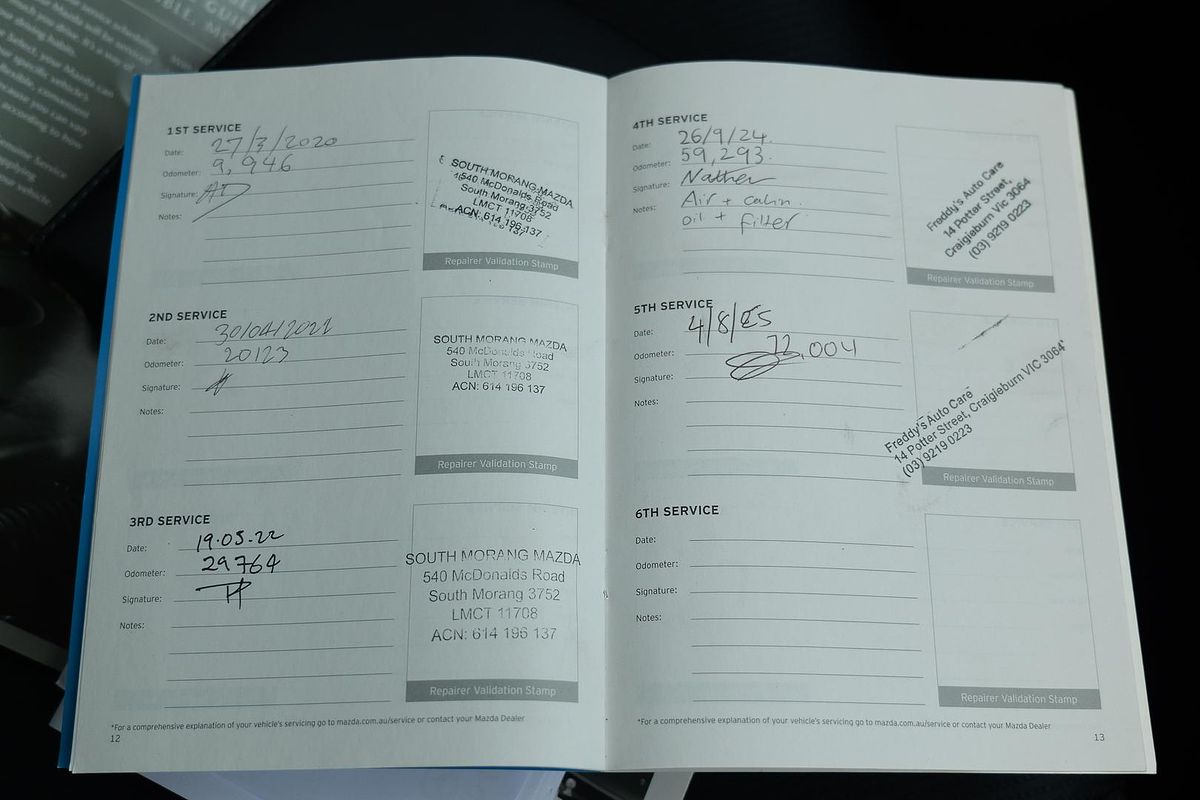 1ST SERVICE
Date: 27/3/2020
Odometer: 9,946
Signature: AD
Notes:
SOUTH MORANG MAZDA
540 McDonalds Road
South Morang 3752
LMCT 11708
ACN: 614 196 137
Repairer Validation Stamp
2ND SERVICE
Date: 30/04/2021
Odometer: 20123
Signature:
Notes:
SOUTH MORANG MAZDA
540 McDonalds Road
South Morang 3752
LMCT 11708
ACN: 614 196 137
Repairer Validation Stamp
3RD SERVICE
Date: 19.05.22
Odometer: 29764
Signature:
Notes:
SOUTH MORANG MAZDA
540 McDonalds Road
South Morang 3752
LMCT 11708
ACN: 614 196 137
Repairer Validation Stamp
*For a comprehensive explanation of your vehicle's servicing go to mazda.com.au/service or contact your Mazda Dealer
12
4TH SERVICE
Date: 26/9/24.
Odometer: 59,293.
Signature: Nathen
Notes: Air + cabin.
oil + filter
Freddy's Auto Care
14 Potter Street,
Craigieburn Vic 3064
(03) 9219 0223
Repairer Validation Stamp
5TH SERVICE
Date: 4/8/25
Odometer: 72,004
Signature:
Notes:
Freddy's Auto Care
14 Potter Street, Craigieburn VIC 3064
(03) 9219 0223
Repairer Validation Stamp
6TH SERVICE
Date:
Odometer:
Signature:
Notes:
Repairer Validation Stamp
*For a comprehensive explanation of your vehicle's servicing go to mazda.com.au/service or contact your Mazda Dealer
13